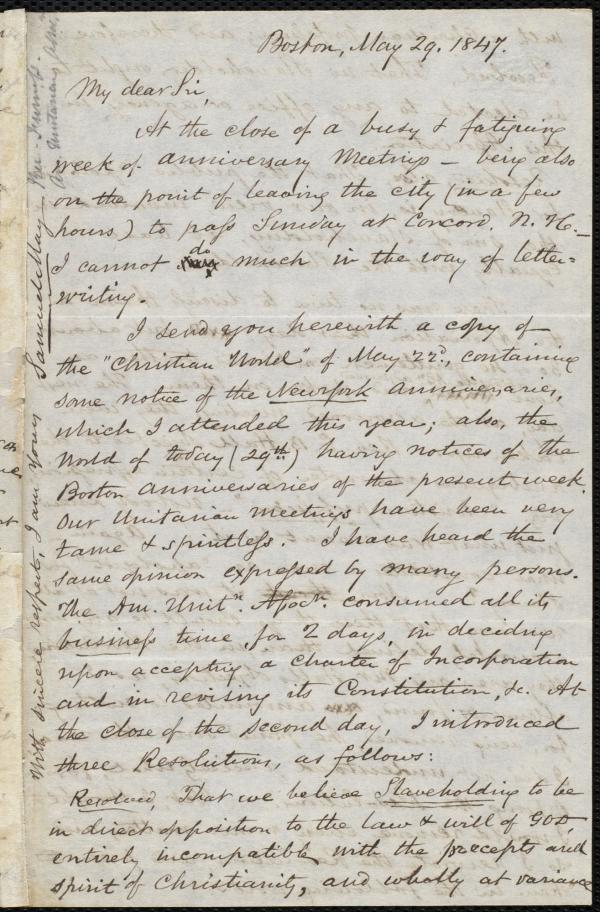 Boston, May 29. 1847.
My dear Sir,
At the close of a busy & fatiguing
week of Anniversary Meetings – being also
on the point of leaving the city (in a few
hours) to pass Sunday at Concord, N. H. –
I cannot do much in the way of letter=
writing.
I send you herewith a copy of
the "Christian World" of May 22d., containing
some notice of the New York Anniversaries,
which I attended this year; also, the
World of today (29th.) having notices of the
Boston Anniversaries of the present week.
Our Unitarian meetings have been very
tame & spiritless. I have heard the
same opinion expressed by many persons.
The Am. Unitn. Assocn. consumed all its
business time, for 2 days, in deciding
upon accepting a Charter of Incorporation
and in revising its Constitution, &c. At
the close of the second day, I introduced
three Resolutions, as follows:
Resolved, That we believe Slaveholding to be
in direct opposition to the law & will of GOD,
entirely incompatible with the precepts and
spirit of Christianity, and wholly at variance
With sincere respect, I am yours Samuel May Jr.
Unitarian